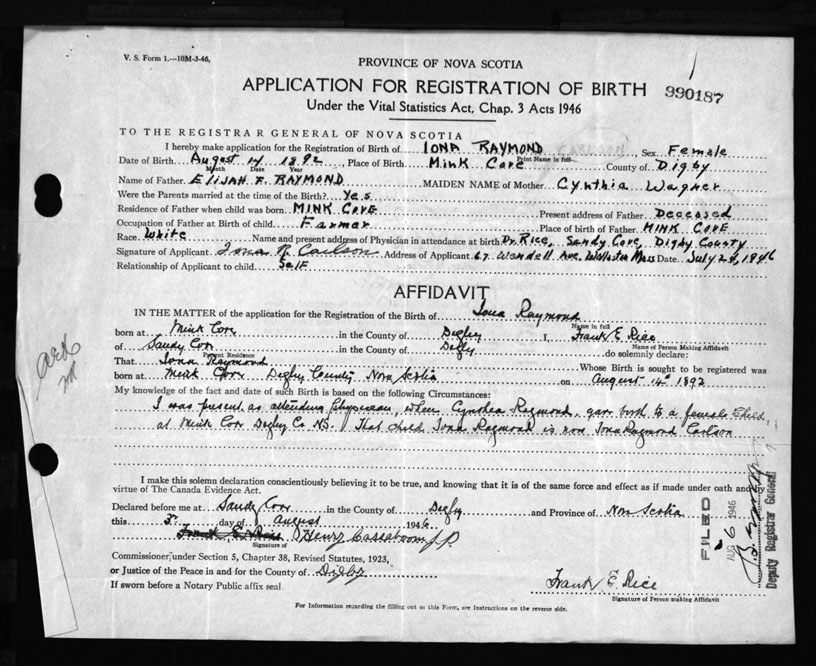 V. S. Form 1.—10M-3-46.
PROVINCE OF NOVA SCOTIA
APPLICATION FOR REGISTRATION OF BIRTH
990187
Under the Vital Statistics Act, Chap. 3 Acts 1946
TO THE REGISTRAR GENERAL OF NOVA SCOTIA
I hereby make application for the Registration of Birth of IONA RAYMOND, Sex Female
Print Name in full
Date of Birth August 14 1892, Place of Birth Mink Cove County of Digby
Month Date Year
Name of Father ELIJAH F. RAYMOND MAIDEN NAME of Mother Cynthia Wagner
Were the Parents married at the time of the Birth? Yes
Residence of Father when child was born MINK COVE Present address of Father Deceased
Occupation of Father at Birth of child Farmer Place of birth of Father MINK COVE
Race White Name and present address of Physician in attendance at birth Dr. Rice, Sandy Cove, Digby County
Signature of Applicant Iona R Carlson Address of Applicant 67 Wendell Ave. Wollaston Mass Date July 24, 1946
Relationship of Applicant to child Self
AFFIDAVIT
IN THE MATTER of the application for the Registration of the Birth of Iona Raymond
Name in full
born at Mink Cove in the County of Digby I, Frank E Rice
Name of Person Making Affidavit
of Sandy Cove in the County of Digby do solemnly declare:
Present Residence
That Iona Raymond Whose Birth is sought to be registered was
born at Mink Cove Digby County Nova Scotia on August 14th 1892
My knowledge of the fact and date of such Birth is based on the following Circumstances:
I was present as attending Physician, when Cynthia Raymond, gave birth to a female child,
at Mink Cove Digby Co NS. That child Iona Raymond is now Iona Raymond Carlson
I make this solemn declaration conscientiously believing it to be true, and knowing that it is of the same force and effect as if made under oath and by
virtue of The Canada Evidence Act.
Declared before me at Sandy Cove in the County of Digby and Province of Nova Scotia
this 3rd day of August 1946
Frank E. Rice Henry J.P.
Signature of
Commissioner under Section 5, Chapter 38, Revised Statutes, 1923,
or Justice of the Peace in and for the County of Digby
If sworn before a Notary Public affix seal.
Frank E Rice
Signature of Person making Affidavit
For Information regarding the filling out of this Form, see Instructions on the reverse side.
FILED
AUG 6 1946
Deputy Registrar General